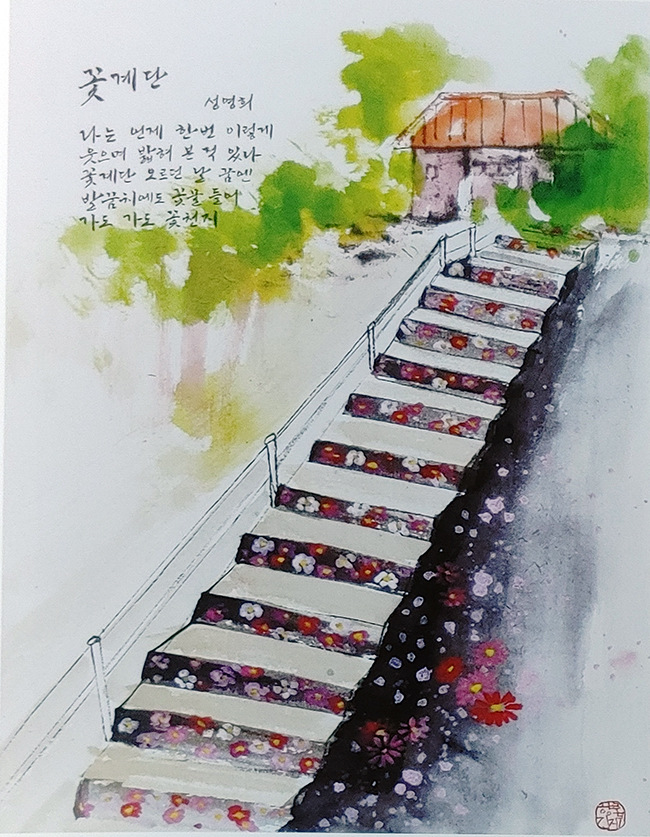 꽃계단
성명희
나는 언제 한번 이렇게
웃으며 밟혀 본 적 있나
꽃계단 오르던 날 밤엔
발꿈치에도 꽃물 들어
가도 가도 꽃천지